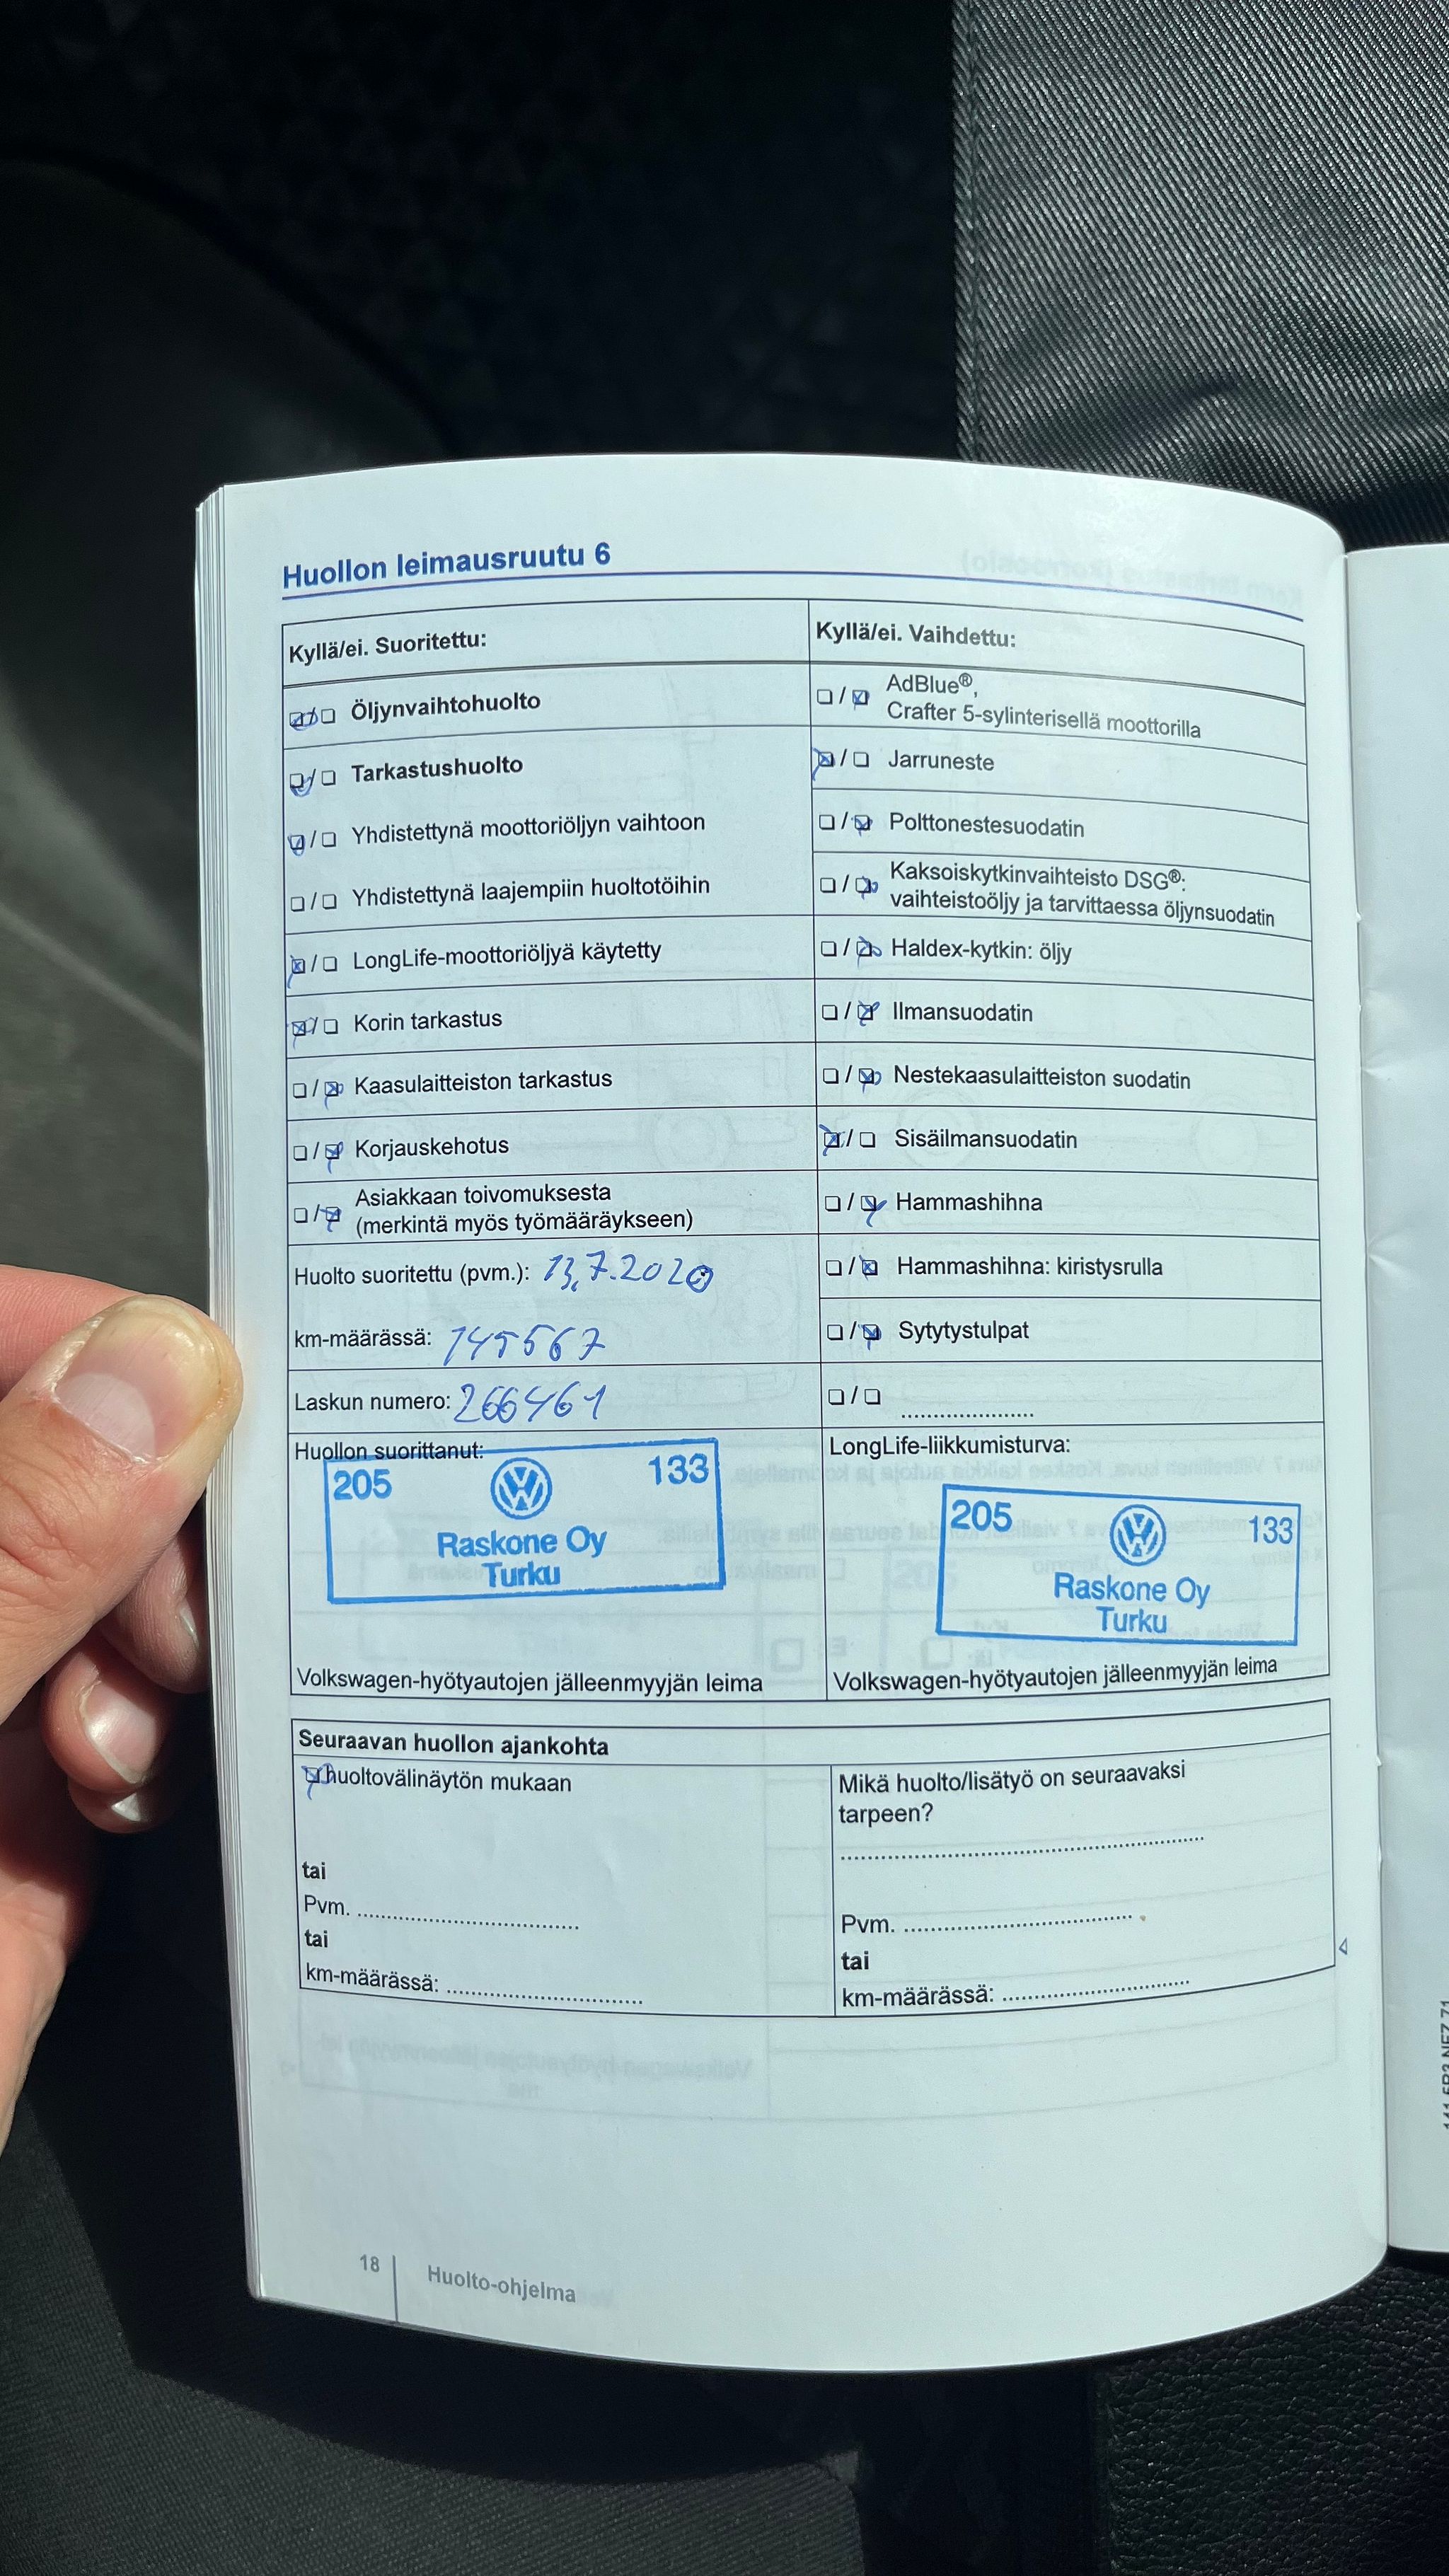 Huollon leimausruutu 6
Kyllä/ei. Suoritettu:
Öljynvaihtohuolto
Tarkastushuolto
Yhdistettynä moottoriöljyn vaihtoon
Yhdistettynä laajempiin huoltotöihin
LongLife-moottoriöljyä käytetty
Korin tarkastus
Kaasulaitteiston tarkastus
Korjauskehotus
Asiakkaan toivomuksesta
(merkintä myös työmääräykseen)
Huolto suoritettu (pvm.): 13.7.2020
km-määrässä: 145567
Laskun numero: 266461
Huollon suorittanut:
205 133
Raskone Oy
Turku
Volkswagen-hyötyautojen jälleenmyyjän leima
Kyllä/ei. Vaihdettu:
AdBlue®,
Crafter 5-sylinterisellä moottorilla
Jarruneste
Polttonestesuodatin
Kaksoiskytkinvaihteisto DSG®:
vaihteistoöljy ja tarvittaessa öljynsuodatin
Haldex-kytkin: öljy
Ilmansuodatin
Nestekaasulaitteiston suodatin
Sisäilmansuodatin
Hammashihna
Hammashihna: kiristysrulla
Sytytystulpat
LongLife-liikkumisturva:
205 133
Raskone Oy
Turku
Volkswagen-hyötyautojen jälleenmyyjän leima
Seuraavan huollon ajankohta
huoltovälinäytön mukaan
tai
Pvm.
tai
km-määrässä:
Mikä huolto/lisätyö on seuraavaksi
tarpeen?
Pvm.
tai
km-määrässä:
18
Huolto-ohjelma